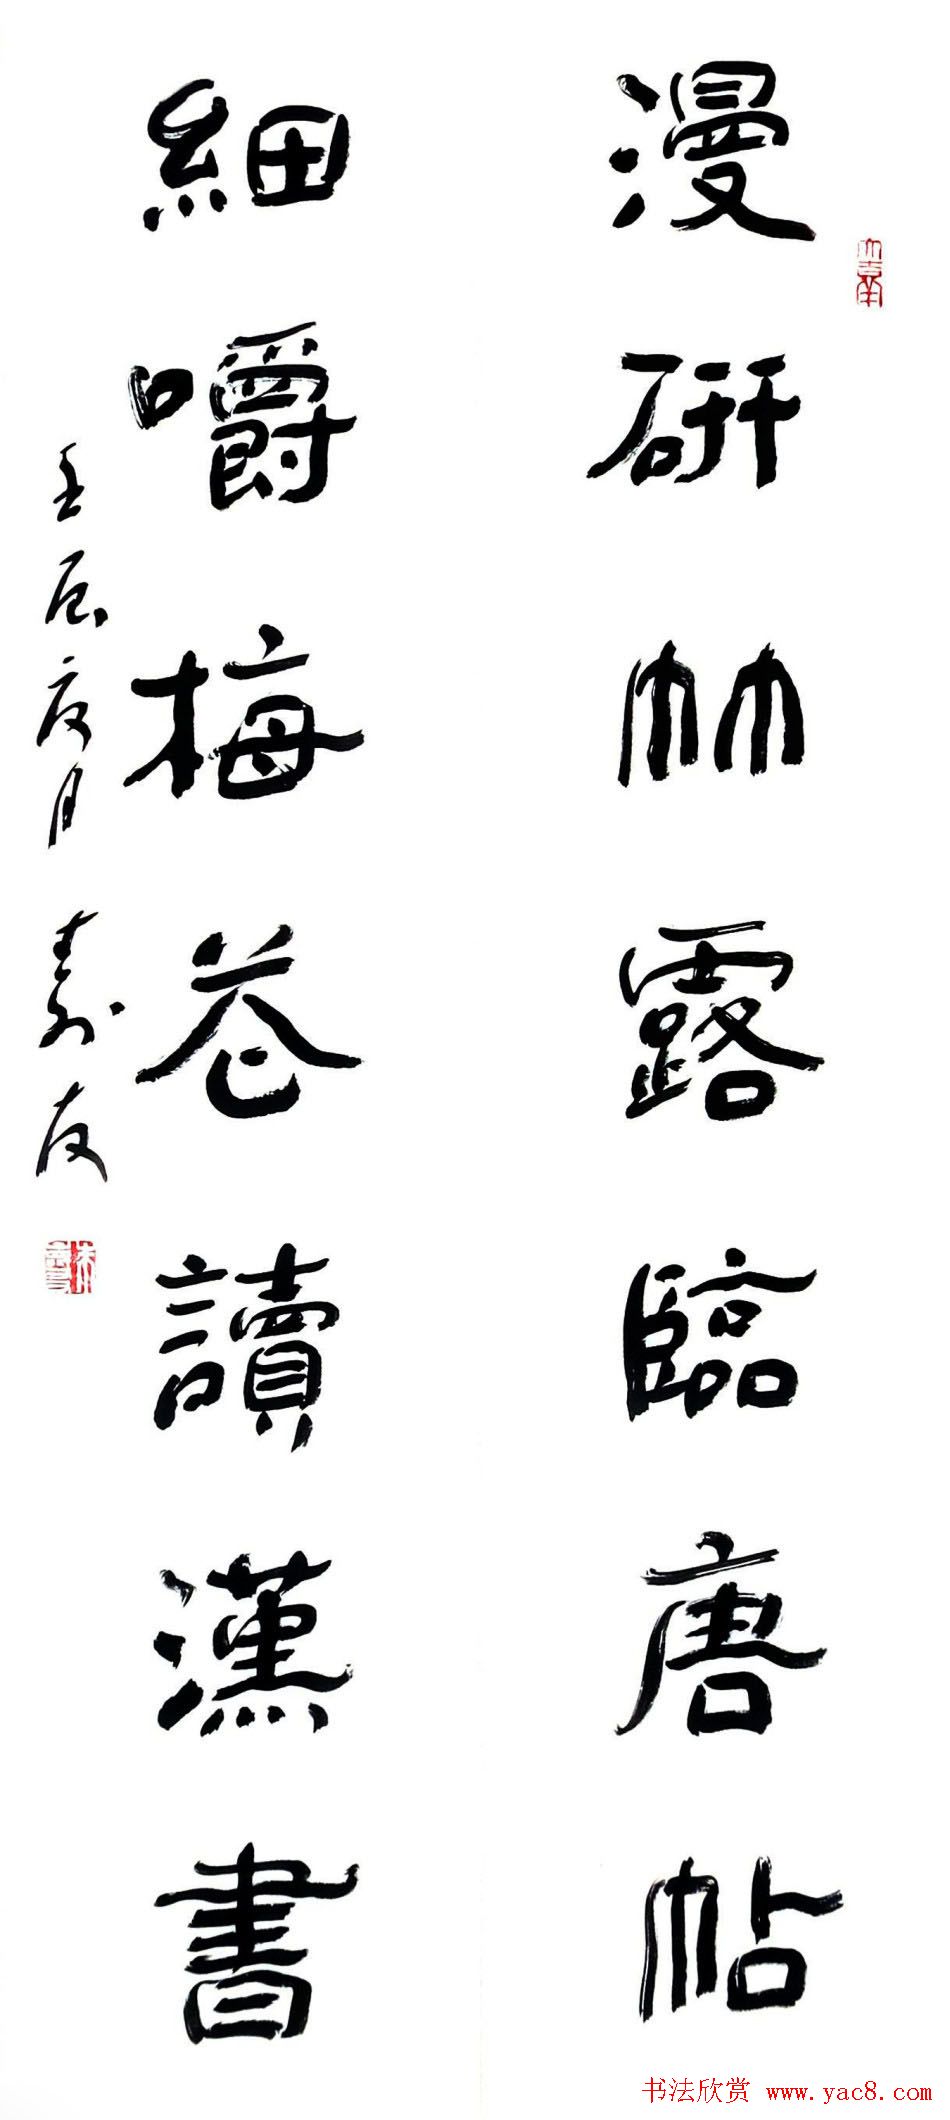 大吉羊
漫研竹露臨唐帖
細嚼梅花讀漢書
壬辰夏月 壽友
书法欣赏 www.yac8.com